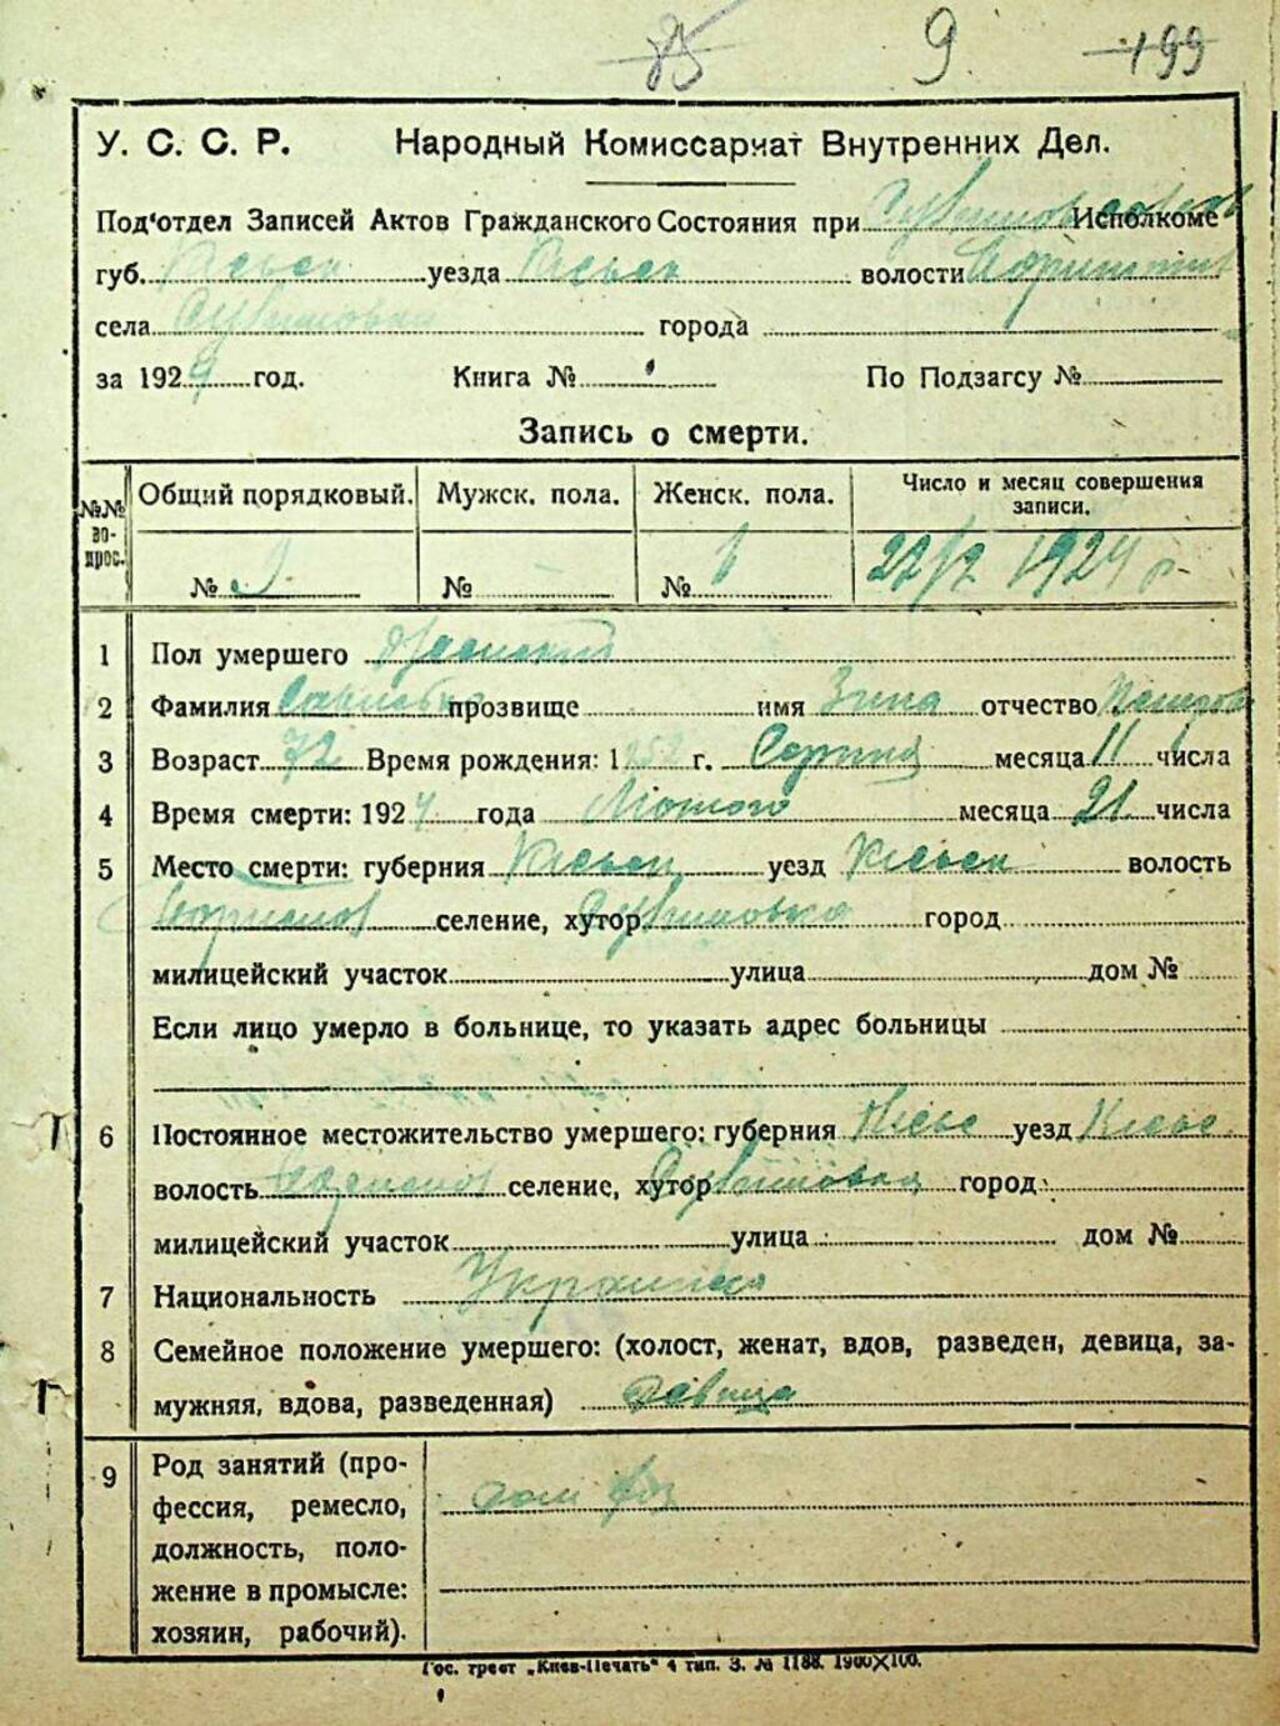 85 9. 199
У. С. С. Р. Народный Комиссариат Внутренних Дел.
Под'отдел Записей Актов Гражданского Состояния при Исполкоме
губ. Киевск уезда Киевск волости
села города
за 1924 год. Книга № По Подзагсу №
Запись о смерти.
№№ вопрос. Общий порядковый. Мужск. пола. Женск. пола. Число и месяц совершения
записи.
№ 9 № - № 6 22/2 1924 г.
1 Пол умершего Женский
2 Фамилия прозвище имя Зина отчество
3 Возраст 72 Время рождения: 1852 г. Серпня месяца 11 числа
4 Время смерти: 1924 года Лютого месяца 21 числа
5 Место смерти: губерния Киевск уезд Киевск волость
селение, хутор город
милицейский участок улица дом №
Если лицо умерло в больнице, то указать адрес больницы
6 Постоянное местожительство умершего: губерния Киевс уезд Киевс
волость селение, хутор город
милицейский участок улица дом №
7 Национальность Украинка
8 Семейное положение умершего: (холост, женат, вдов, разведен, девица, за-
мужняя, вдова, разведенная) Девица
9 Род занятий (про-
фессия, ремесло,
должность, поло-
жение в промысле:
хозяин, рабочий).
Гос. трест „Киев-Печать" 4 тип. З. № 1188. 1900X100.